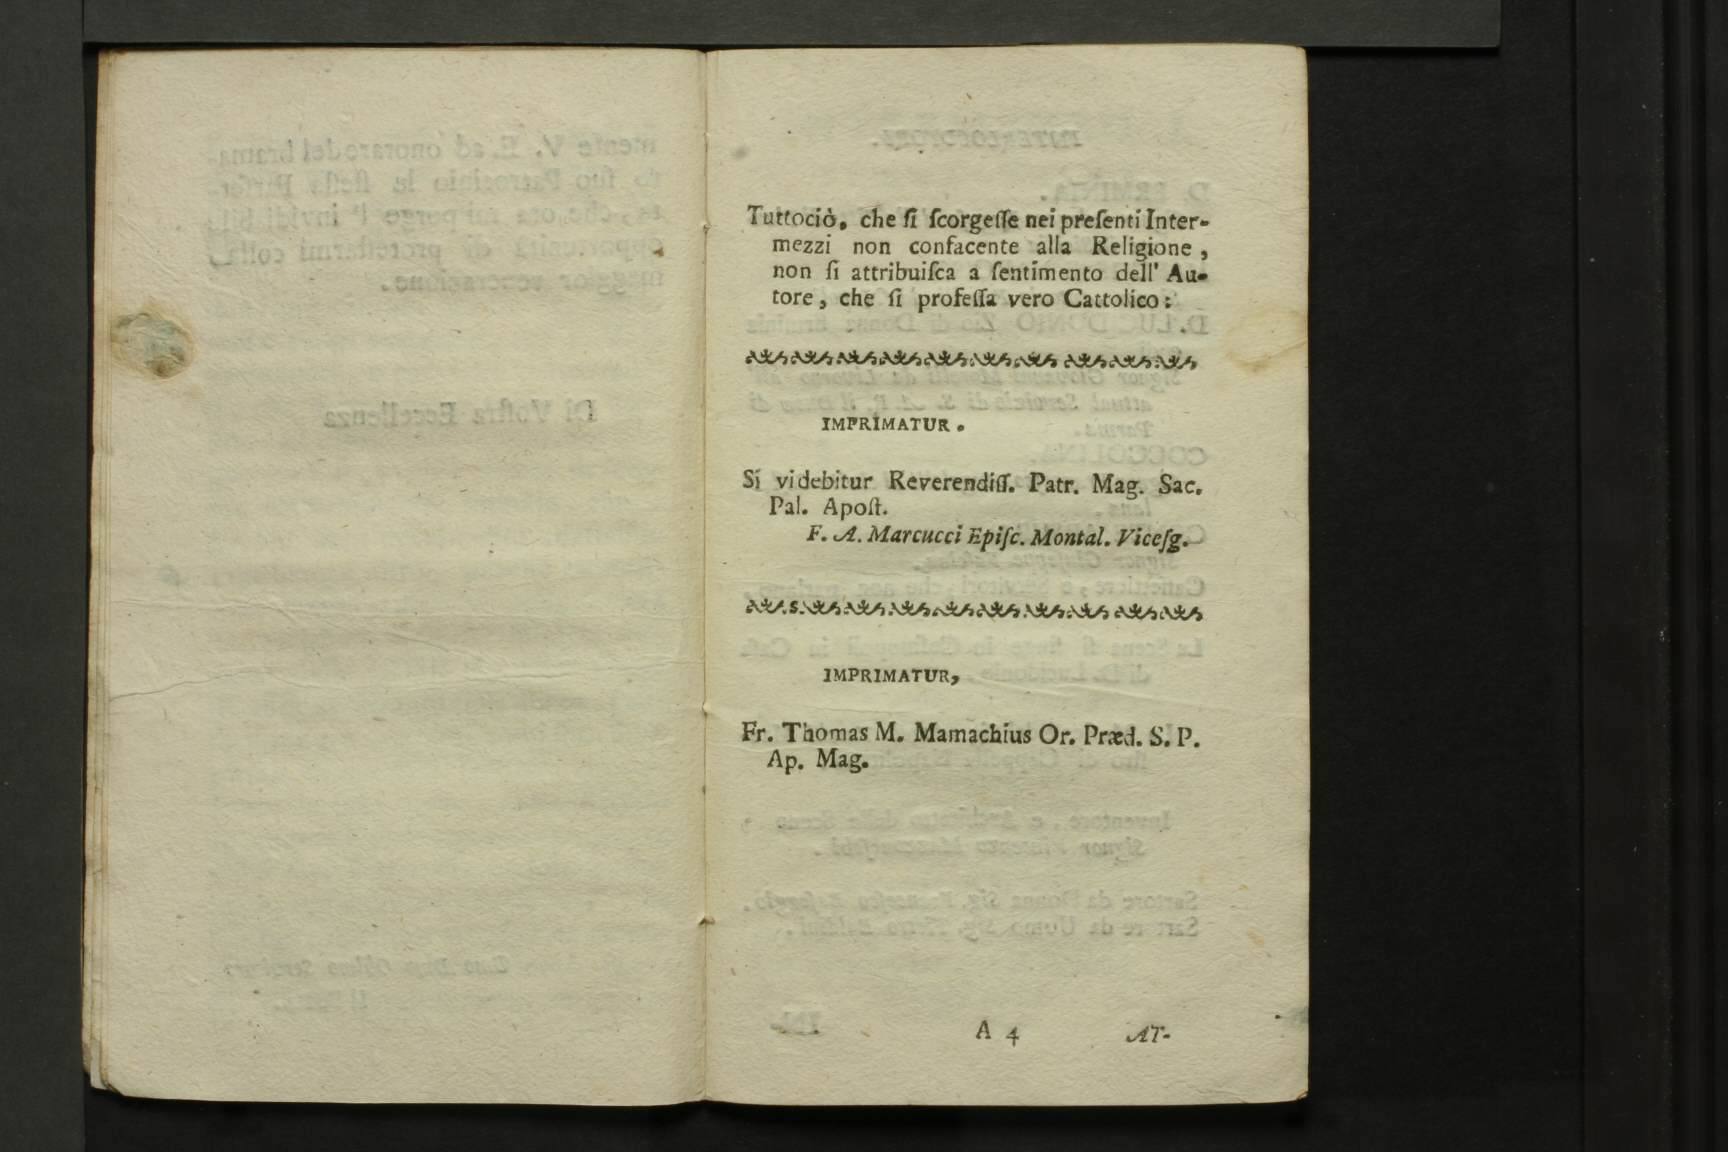 Tuttociò, che ſi ſcorgeſſe nei preſenti Inter-
mezzi non confacente alla Religione,
non ſi attribuiſca a ſentimento dell' Au-
tore, che ſi profeſſa vero Cattolico:
IMPRIMATUR.
Si videbitur Reverendiſſ. Patr. Mag. Sac.
Pal. Apoſt.
F. A. Marcucci Epiſc. Montal. Viceſg.
IMPRIMATUR,
Fr. Thomas M. Mamachius Or. Præd. S. P.
Ap. Mag.
A 4 AT-